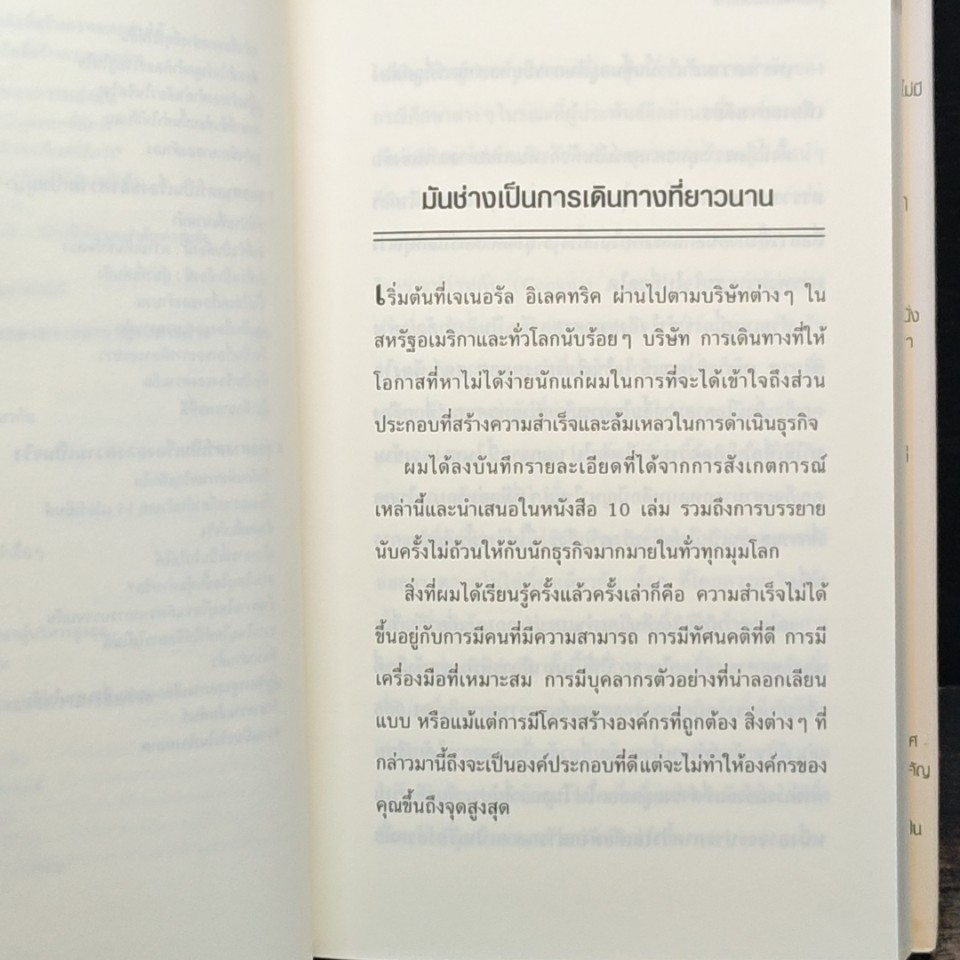 มันช่างเป็นการเดินทางที่ยาวนาน
เริ่มต้นที่เจเนอรัล อิเลคทริค ผ่านไปตามบริษัทต่างๆ ใน
สหรัฐอเมริกาและทั่วโลกนับร้อยๆ บริษัท การเดินทางที่ให้
โอกาสที่หาไม่ได้ง่ายนักแก่ผมในการที่จะได้เข้าใจถึงส่วน
ประกอบที่สร้างความสำเร็จและล้มเหลวในการดำเนินธุรกิจ
ผมได้ลงบันทึกรายละเอียดที่ได้จากการสังเกตการณ์
เหล่านี้และนำเสนอในหนังสือ 10 เล่ม รวมถึงการบรรยาย
นับครั้งไม่ถ้วนให้กับนักธุรกิจมากมายในทั่วทุกมุมโลก
สิ่งที่ผมได้เรียนรู้ครั้งแล้วครั้งเล่าก็คือ ความสำเร็จไม่ได้
ขึ้นอยู่กับการมีคนที่มีความสามารถ การมีทัศนคติที่ดี การมี
เครื่องมือที่เหมาะสม การมีบุคลากรตัวอย่างที่น่าลอกเลียน
แบบ หรือแม้แต่การมีโครงสร้างองค์กรที่ถูกต้อง สิ่งต่างๆ ที่
กล่าวมานี้ถึงจะเป็นองค์ประกอบที่ดีแต่จะไม่ทำให้องค์กรของ
คุณขึ้นถึงจุดสูงสุด
ไม่มี